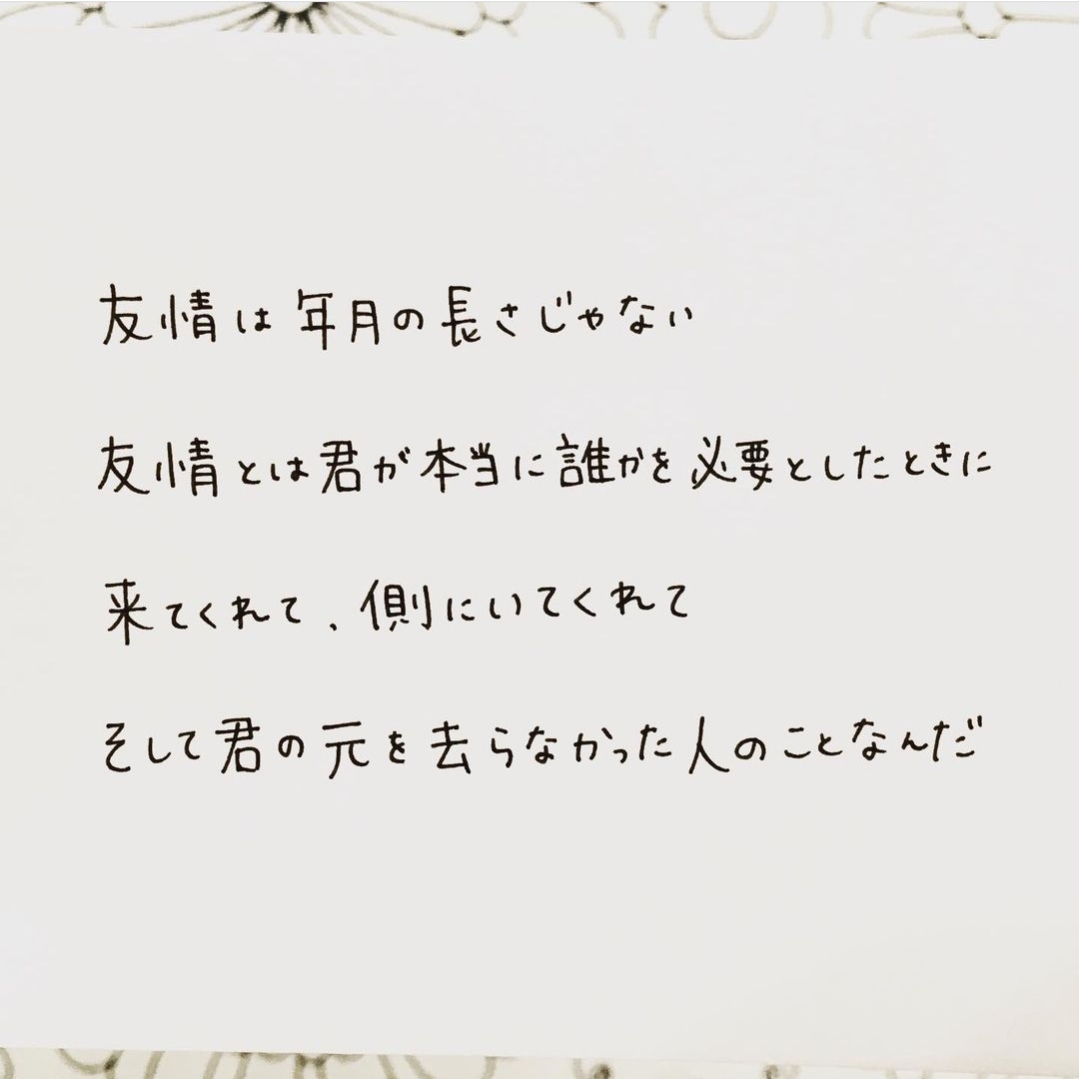 友情は年月の長さじゃない
友情とは君が本当に誰かを必要としたときに
来てくれて、側にいてくれて
そして君の元を去らなかった人のことなんだ